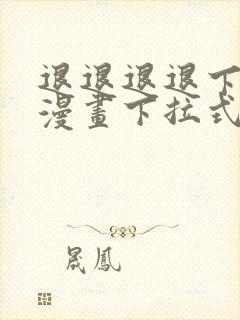 退退退退下
漫畫下拉式
晟鳳